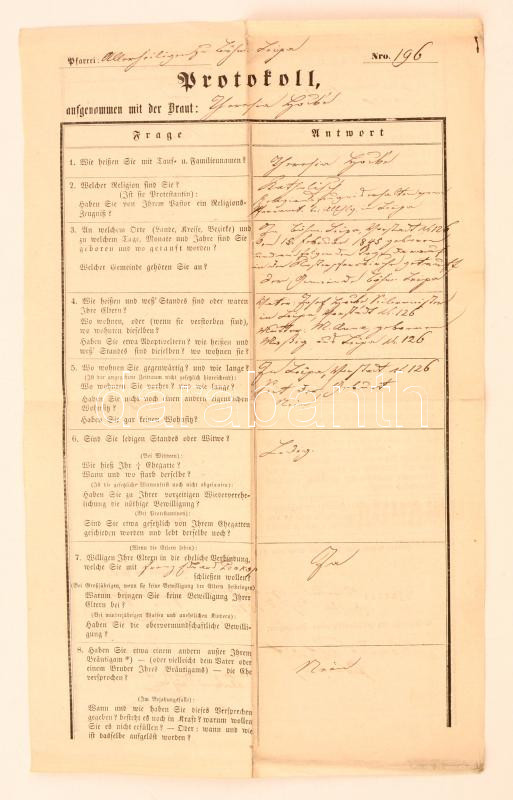 Pfarrei: Allerheiligen zu Böhm. Leipa Nro. 196
Protokoll,
aufgenommen mit der Braut: Theresia
Frage Antwort
1. Wie heißen Sie mit Tauf- u. Familiennamen? Theresia
2. Welcher Religion sind Sie? Katholisch
(Ist sie Protestantin):
Haben Sie von Ihrem Pastor ein Religions-
Zeugniß?
3. An welchem Orte (Lande, Kreise, Bezirke) und
zu welchem Tage, Monate und Jahre sind Sie
geboren und wo getauft worden?
Welcher Gemeinde gehören Sie an?
In Böhm. Leipa, Vorstadt N. 126
den 15. Februar 1845 geboren
der Gemeinde Böhm. Leipa
4. Wie heissen und weß' Standes sind oder waren
Ihre Eltern?
Wo wohnen, oder (wenn sie verstorben sind),
wo wohnten dieselben?
Haben Sie etwa Adoptiveltern? wie heissen und
weß' Standes sind dieselben? wo wohnen sie?
Vater Josef
in Leipa, Vorstadt N. 126
Mutter M. Anna, geborene
aus Leipa N. 126
5. Wo wohnen Sie gegenwärtig? und wie lange?
(Ist der angegebene Zeitraum nicht gesetzlich hinreichend):
Wo wohnten Sie vorher? und wie lange?
Haben Sie nicht noch einen andern eigentlichen
Wohnsitz?
Haben Sie gar keinen Wohnsitz?
In Leipa, Vorstadt N. 126
Seit der Geburt
Nein
6. Sind Sie ledigen Standes oder Witwe? Ledig.
(Bei Witwen):
Wie hieß Ihr † Ehegatte?
Wann und wo starb derselbe?
(Ist die gesetzliche Witwenfrist noch nicht abgelaufen):
Haben Sie zu Ihrer vorzeitigen Wiederverehe-
lichung die nöthige Bewilligung?
(Bei Protestantinnen):
Sind Sie etwa gesetzlich von Ihrem Ehegatten
geschieden worden und lebt derselbe noch?
(Wenn die Eltern leben):
7. Willigen Ihre Eltern in die eheliche Verbindung,
welche Sie mit Franz
schließen wollen?
Ja
(Bei Großjährigen, wenn sie keine Bewilligung der Eltern beibringen)
Warum bringen Sie keine Bewilligung Ihrer
Eltern bei?
(Bei minderjährigen Waisen und unehelichen Kindern):
Haben Sie die obervormundschaftliche Bewilli-
gung?
8. Haben Sie etwa einem andern außer Ihrem
Bräutigam *) — (oder vielleicht dem Vater oder
einem Bruder Ihres Bräutigams) — die Ehe
versprochen?
Nein
(Im Bejahungsfalle):
Wann und wie haben Sie dieses Versprechen
gegeben? besteht es noch in Kraft? warum wollen
Sie es nicht erfüllen? — Oder: wann und wie
ist dasselbe aufgelöst worden?
darabanth